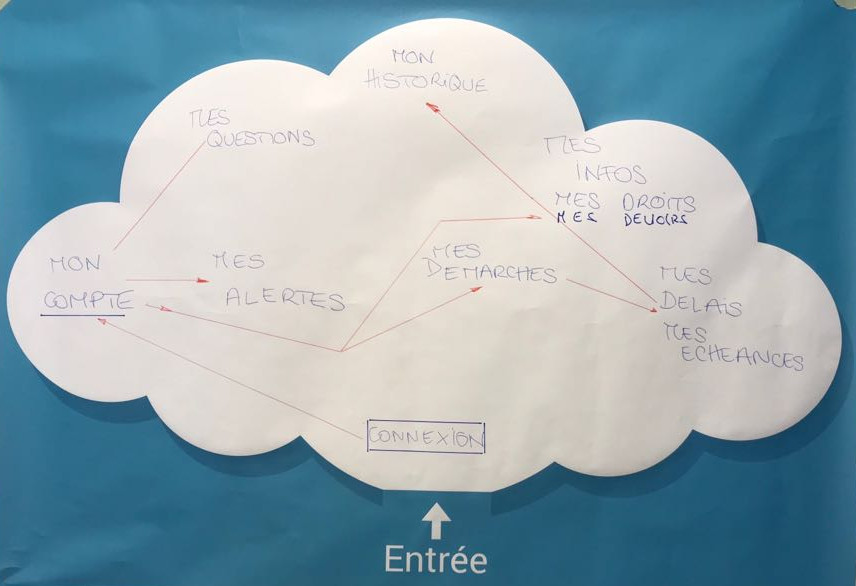 MON
HISTORIQUE
MES
QUESTIONS
MES
INFOS
MES DROITS
MES DEVOIRS
MON
COMPTE
MES
ALERTES
MES
DEMARCHES
MES
DELAIS
MES
ECHEANCES
CONNEXION
Entrée